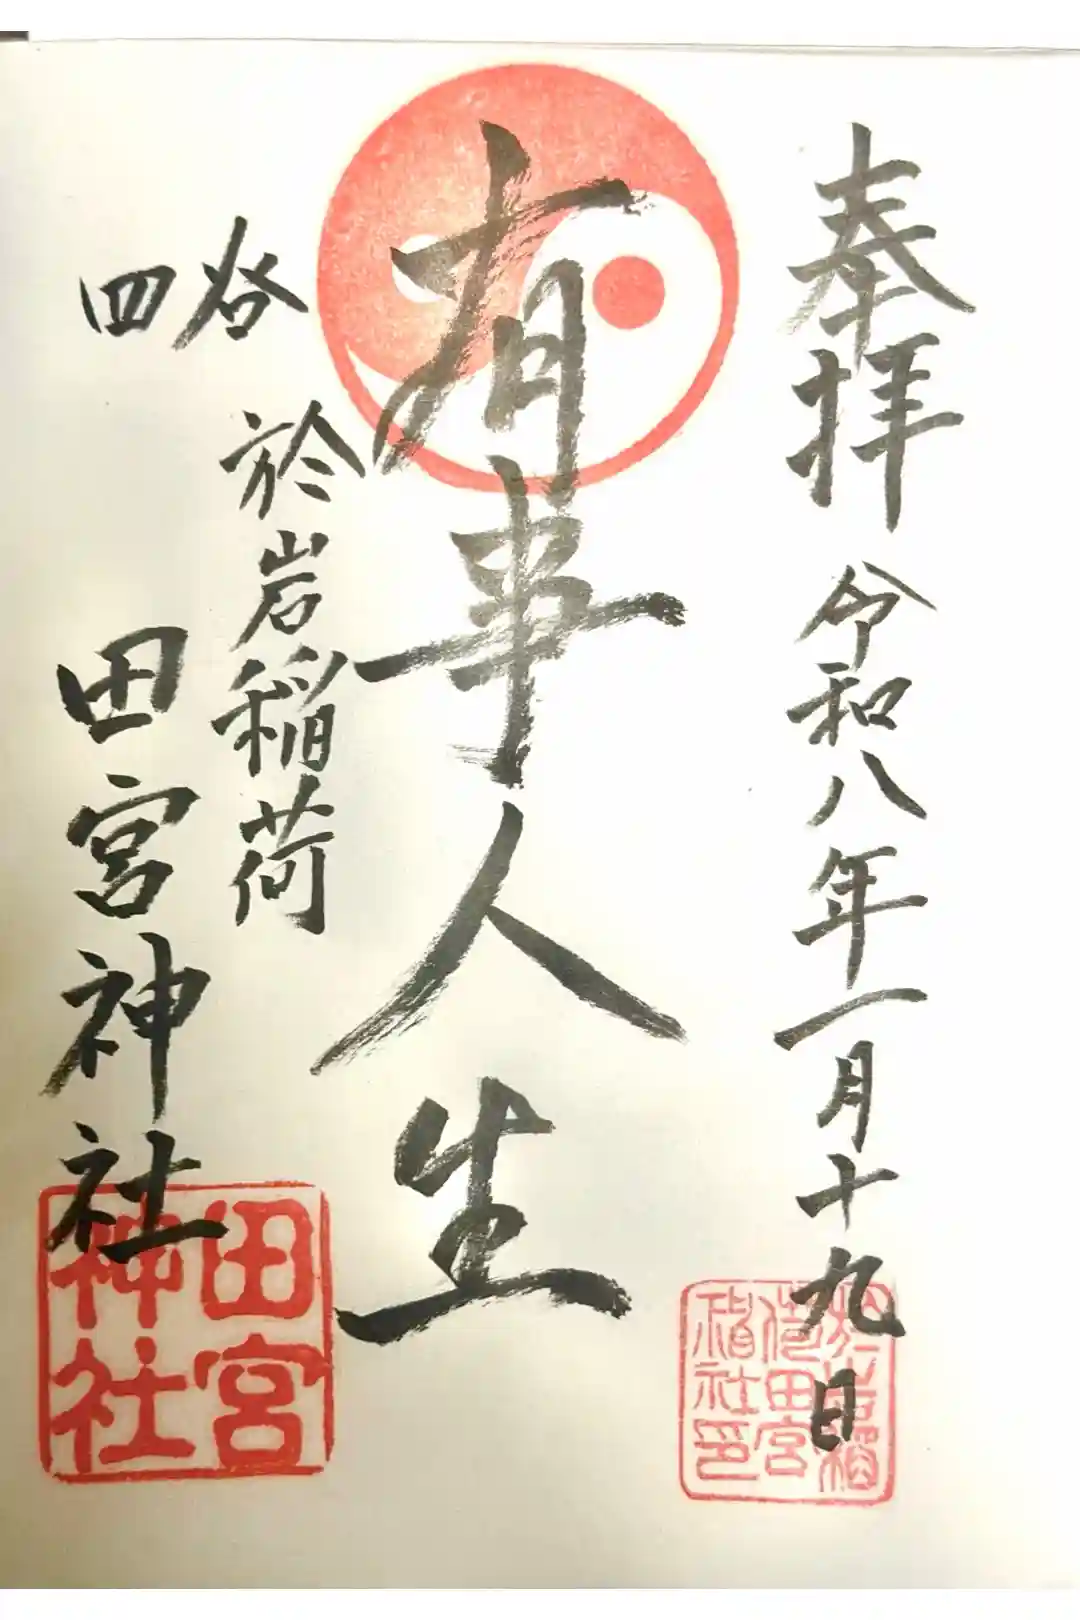 奉拝 令和八年一月十九日
有事人生
四谷
於岩稲荷
田宮神社
田宮
神社
於岩稲
荷田宮
神社印